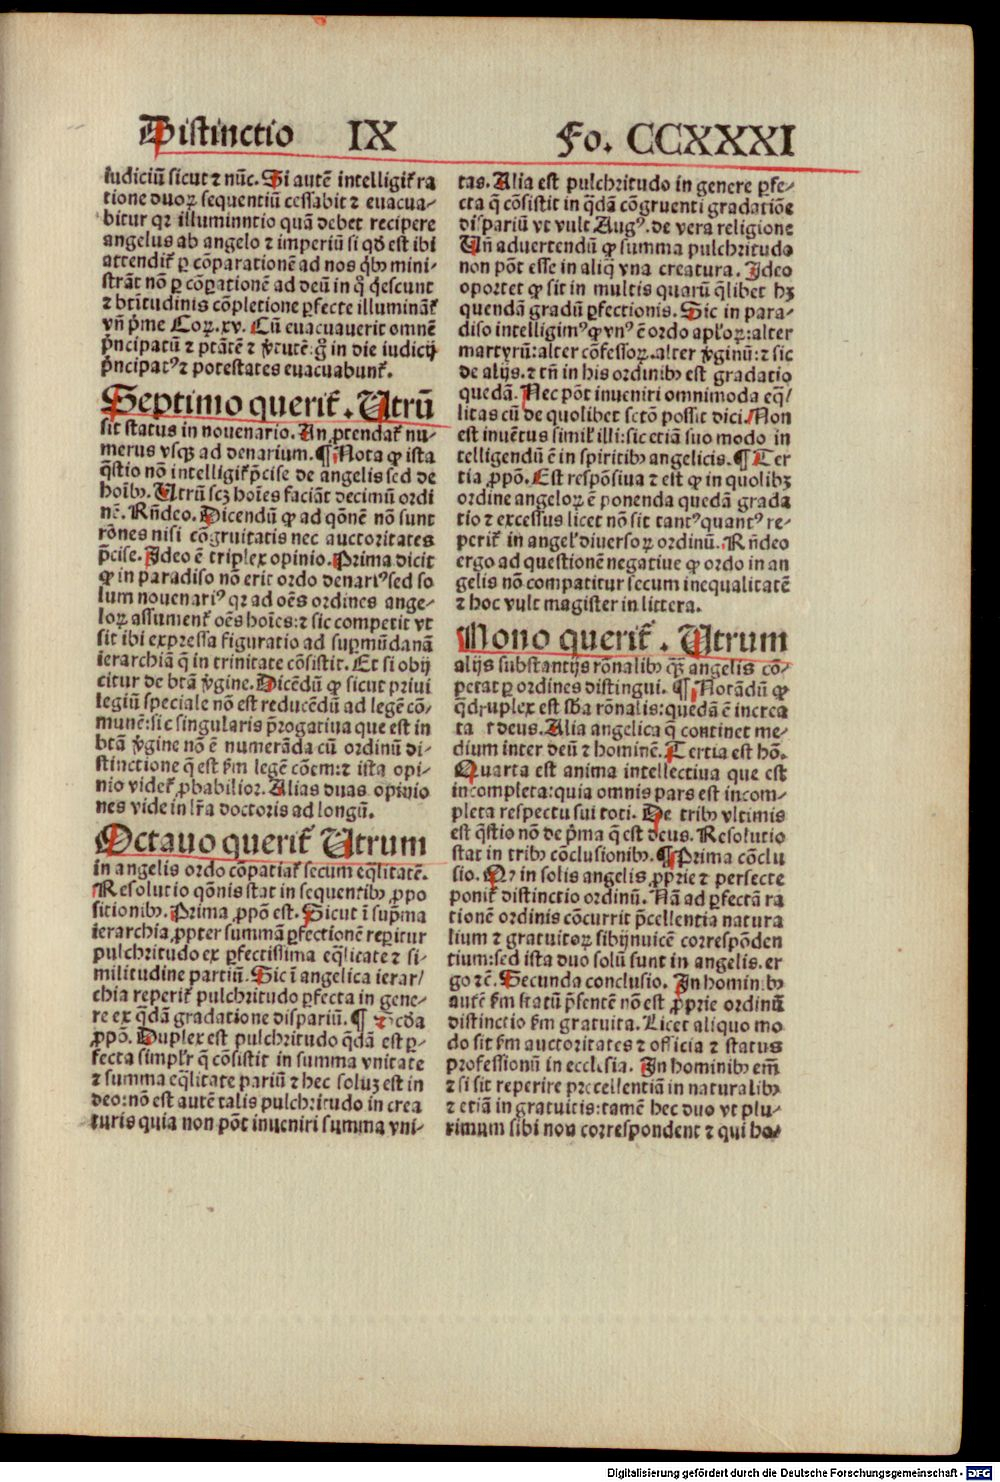 Distinctio IX Fo. CCXXXI
iudiciū sicut ⁊ nūc. Si autē intelligit̃ ra
tione duoꝝ sequentiū cessabit ⁊ euacua-
bitur qꝛ illuminntio quā debet recipere
angelus ab angelo ⁊ imperiū si qd̄ est ibi
attendit̃ ꝑ cōparationē ad nos qͥbꝰ mini-
strāt nō ꝑ cōꝑationē ad deū in qͦ qͥescunt
⁊ btītudinis cōpletione ꝑfecte illuminãt̃
vn̄ pͥme Coꝝ. xv. Cū euacuauerit omnē
pͥncipatū ⁊ ptātē ⁊ v̓tutē: gͦ in die iudicij
pͥncipatꝰ ⁊ potestates euacuabunt̃.
Septimo querit̃. Utrū
sit status in nouenario. An ꝓtendat̃ nu-
merus vsqꝫ ad denarium. ¶ Nota ꝙ ista
q̄stio nō intelligit̃ p̄cise de angelis sed de
hoībꝰ. Utrū scꝫ hoīes faciāt decimū ordi
nē. Rn̄deo. Dicendū ꝙ ad qōnē nō sunt
rōnes nisi cōgruitatis nec auctoritates
p̄cise. Ideo ē triplex opinio. Prima dicit
ꝙ in paradiso nō erit ordo denariꝰ sed so
lum nouenariꝰ qꝛ ad oēs ordines ange-
loꝝ assument̃ oēs hoīes: ⁊ sic competit vt
sit ibi expressa figuratio ad suꝑmūdanā
ierarchiā q̄ in trinitate cōsistit. Et si obij
citur de btā v̓gine. Dicēdū ꝙ sicut priui
legiū speciale nō est reducēdū ad legē cō-
munē: sic singularis p̄rogatiua que est in
btā v̓gine nō ē numerāda cū ordinū di-
stinctione q̄ est ẜm legē cōem: ⁊ ista opi-
nio videt̃ ꝓbabilior. Alias duas opinio
nes vide in lr̄a doctoris ad longū.
Octauo querit̃ Utrum
in angelis ordo cōpatiat̃ secum eq̄litatē.
Resolutio qōnis stat in sequentibꝰ ꝓpo
sitionibꝰ. Prima ꝓpō est. Sicut ī supͥma
ierarchia ꝓpter summā ꝑfectionē reꝑitur
pulchritudo ex ꝑfectissima eq̄litate ⁊ si-
militudine partiū. Sic ī angelica ierar/
chia reperit̃ pulchritudo ꝑfecta in gene-
re ex q̄dā gradatione dispariū. ¶ Scd̄a
ꝓpō. Duplex est pulchritudo q̄dā est ꝑ-
fecta simpl̓r q̄ cōsistit in summa vnitate
⁊ summa eq̄litate pariū ⁊ hec soluꝫ est in
deo: nō est autē talis pulchritudo in crea
turis quia non pōt inueniri summa vni-
tas. Alia est pulchritudo in genere ꝑfe-
cta q̄ cōsistit in q̄dā cōgruenti gradatiōe
dispariū vt vult Augꝰ. de vera religione
Un̄ aduertendū ꝙ summa pulchritudo
non pōt esse in aliq̄ vna creatura. Ideo
oportet ꝙ sit in multis quarū q̄libet hꝫ
quendā gradū ꝑfectionis. Sic in para-
diso intelligimꝰ ꝙ vnꝰ ē ordo apl̓oꝝ: alter
martyrū: alter cōfessoꝝ. alter v̓ginū: ⁊ sic
de alijs. ⁊ tn̄ in his ordinibꝰ est gradatio
quedā. Nec pōt inueniri omnimoda eq̄/
litas cū de quolibet sctō possit dici. Non
est inuētus simil̓ illi: sic etiā suo modo in
telligendū ē in spiritibꝰ angelicis. ¶ Ter
tia ꝓpō. Est respōsiua ⁊ est ꝙ in quolibꝫ
ordine angeloꝝ ē ponenda quedā grada
tio ⁊ excessus licet nō sit tantꝰ quantꝰ re-
perit̃ in angel̓ diuersoꝝ ordinū. Rn̄deo
ergo ad questionē negatiue ꝙ ordo in an
gelis nō compatitur secum inequalitatē
⁊ hoc vult magister in littera.
Nono querit̃. Utrum
alijs substantijs rōnalibꝰ qͣꝫ angelis cō-
petat ꝑ ordines distingui. ¶ Notādū ꝙ
q̄druplex est sb̄a rōnalis: quedā ē increa
ta deus. Alia angelica q̄ continet me-
dium inter deū ⁊ hominē. Tertia est hō.
Quarta est anima intellectiua que est
incompleta: quia omnis pars est incom-
pleta respectu sui toti. De tribꝰ vltimis
est q̄stio nō de pͥma q̄ est deus. Resolutio
stat in tribꝰ cōclusionibꝰ. ¶ Prima cōclu
sio. Qꝫ in solis angelis ꝓprie ⁊ perfecte
ponit̃ distinctio ordinū. Nā ad ꝑfectā ra
tionē ordinis cōcurrit p̄cellentia natura
lium ⁊ gratuitoꝝ sibijnuicē correspōden
tium: sed ista duo solū sunt in angelis. er
go ⁊ē. Secunda conclusio. In hominibꝰ
autē ẜm statū p̄sentē nō est ꝓprie ordinū
distinctio ẜm gratuita. Licet aliquo mo
do sit ẜm auctoritates ⁊ officia ⁊ status
professionū in ecclesia. In hominibꝰ em̄
⁊ si sit reperire precellentiā in naturalibꝰ
⁊ etiā in gratuitis: tamē hec duo vt plu-
rimum sibi non correspondent ⁊ qui ha-
Digitalisierung gefördert durch die Deutsche Forschungsgemeinschaft - DFG